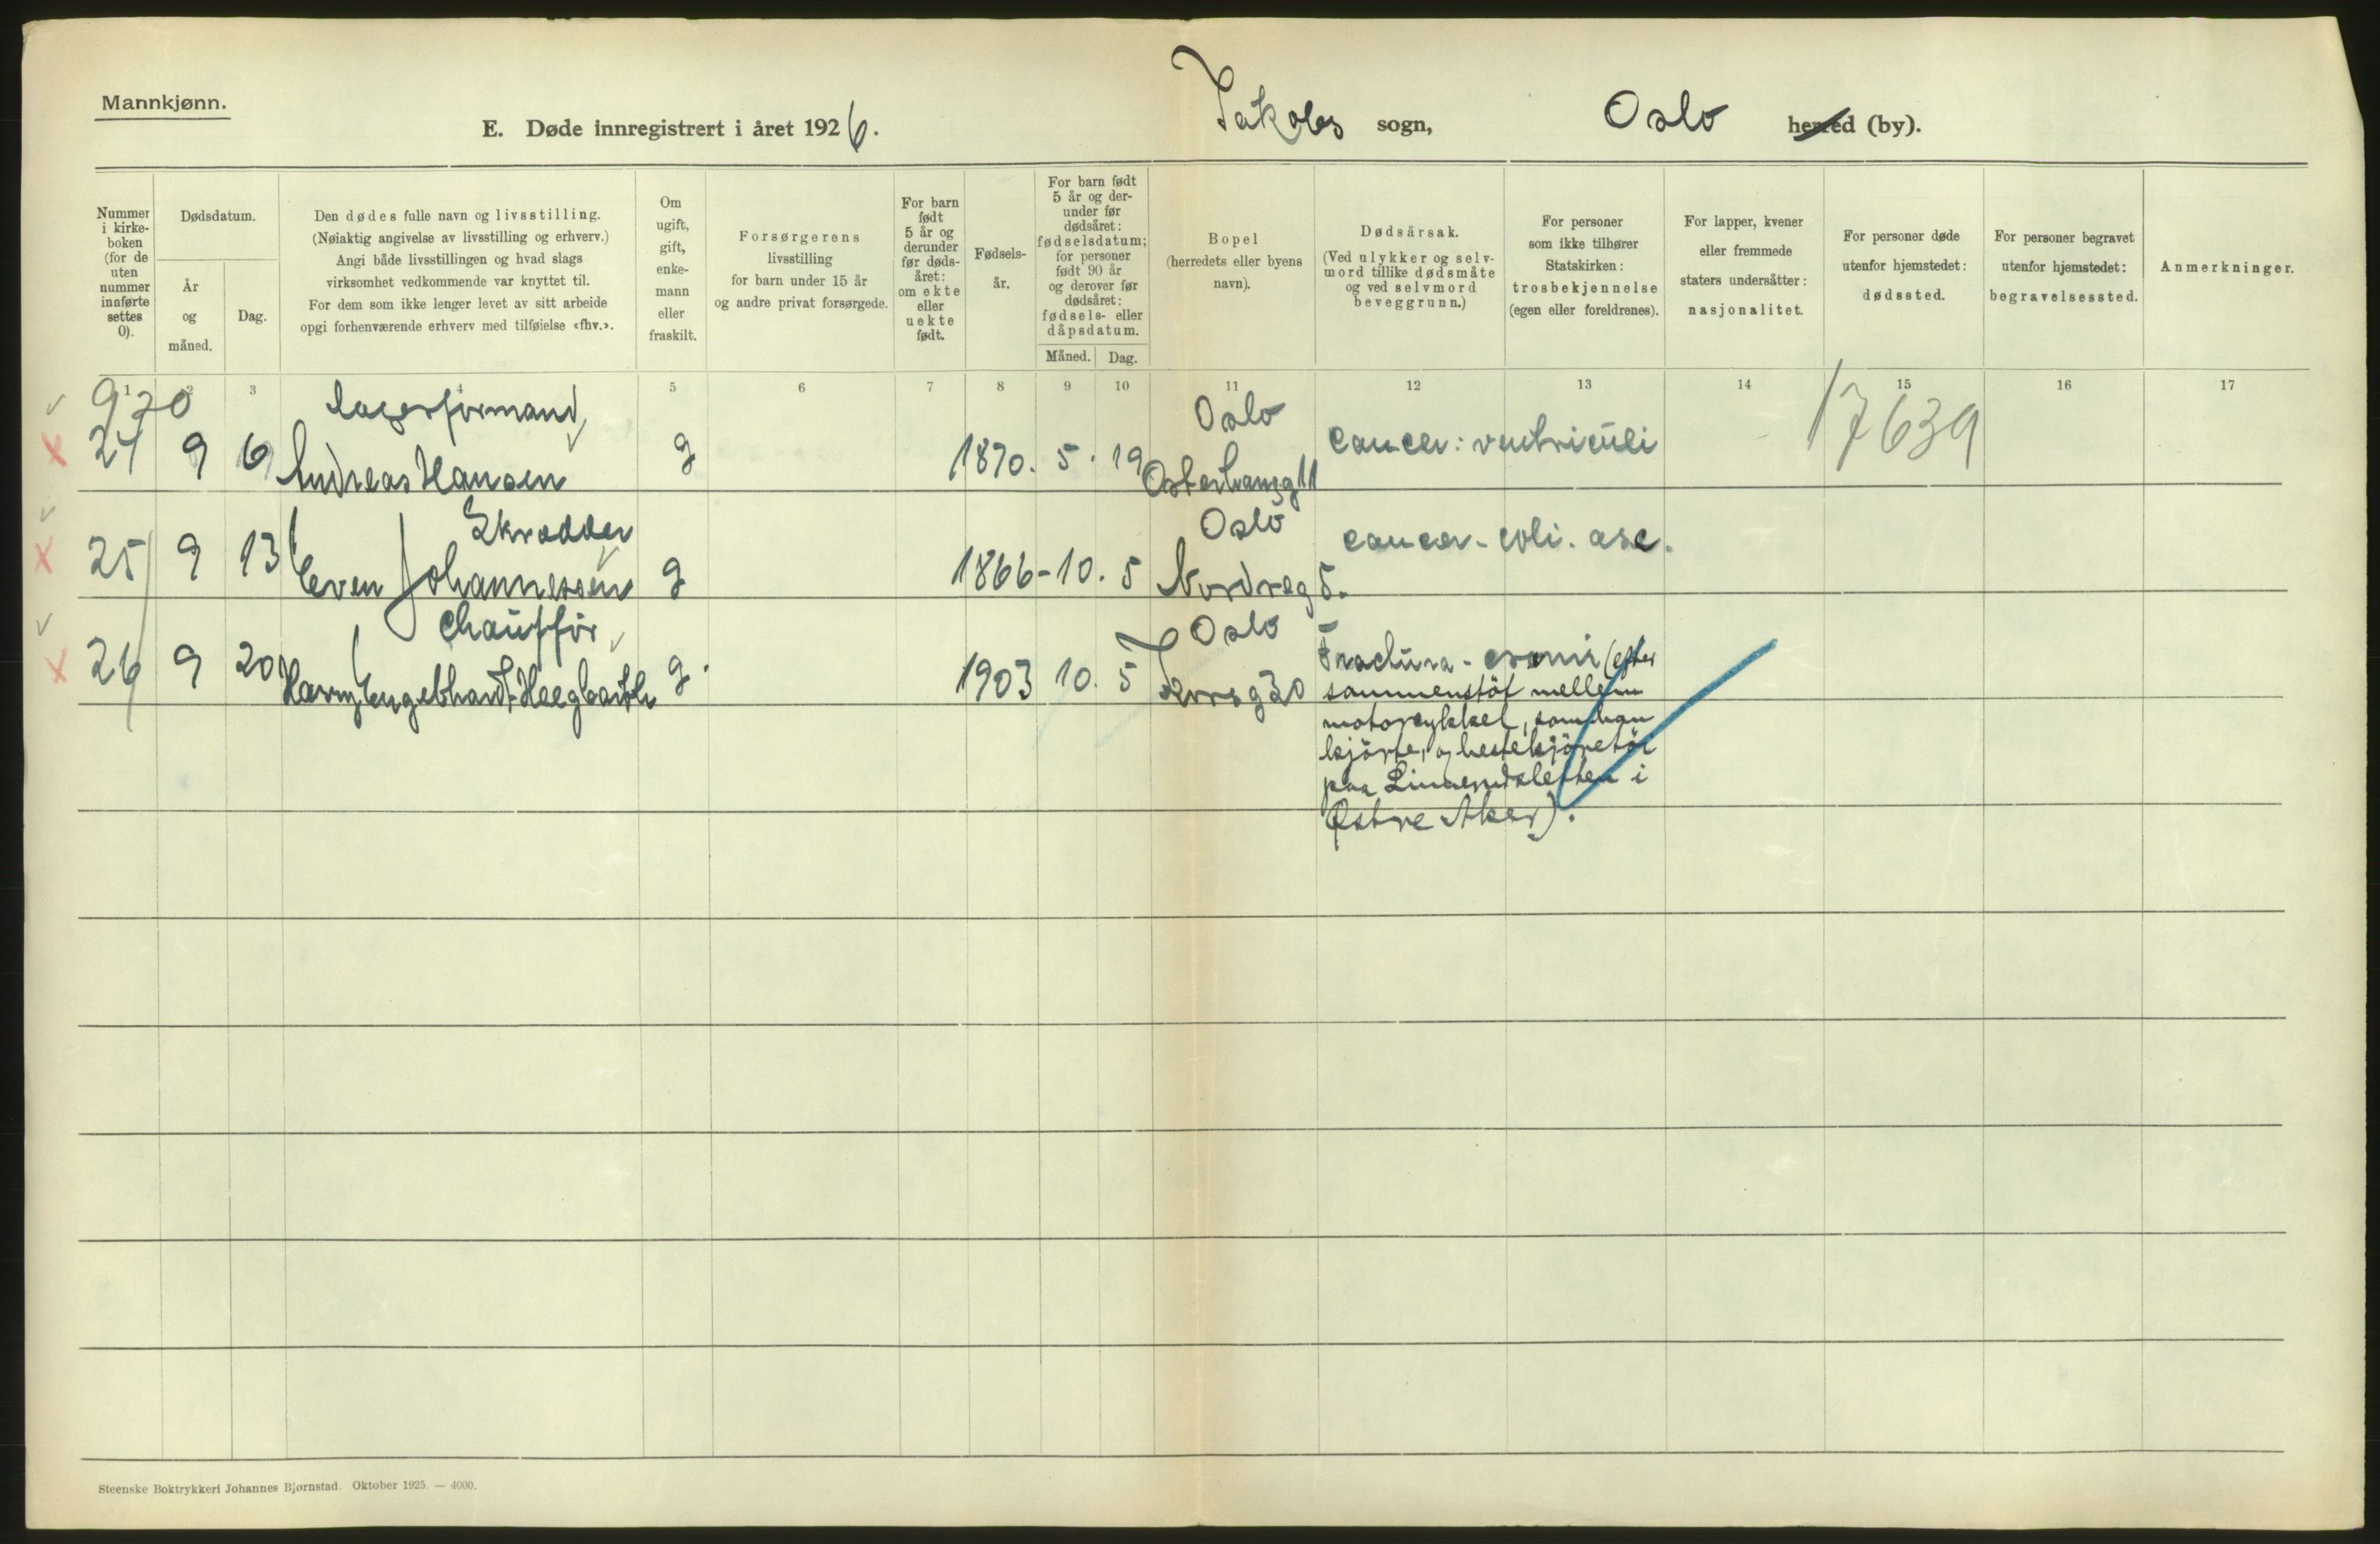 Mannkjønn.
E. Døde innregistrert i året 1926.
Jakobs sogn,
Oslo herred (by).
Nummer i kirke-boken (for de uten nummer innførte settes 0).
Dødsdatum.
År og måned.
Dag.
Den dødes fulle navn og livsstilling.
(Nøiaktig angivelse av livsstilling og erhverv.)
Angi både livsstillingen og hvad slags
virksomhet vedkommende var knyttet til.
For dem som ikke lenger levet av sitt arbeide
opgi forhenværende erhverv med tilføielse «fhv.».
Om ugift, gift, enke-mann eller fraskilt.
Forsørgerens
livsstilling
for barn under 15 år
og andre privat forsørgede.
For barn født 5 år og derunder før døds-året: om ekte eller uekte født.
Fødsels-år.
For barn født 5 år og der-under før dødsåret: fødselsdatum; for personer født 90 år og derover før dødsåret: fødsels- eller dåpsdatum.
Måned.
Dag.
Bopel
(herredets eller byens
navn).
Dødsårsak.
(Ved ulykker og selv-
mord tillike dødsmåte
og ved selvmord
beveggrunn.)
For personer
som ikke tilhører
Statskirken:
trosbekjennelse
(egen eller foreldrenes).
For lapper, kvener
eller fremmede
staters undersåtter:
nasjonalitet.
For personer døde
utenfor hjemstedet:
dødssted.
For personer begravet
utenfor hjemstedet:
begravelsessted.
Anmerkninger.
1 2 3 4 5 6 7 8 9 10 11 12 13 14 15 16 17
970
lagerformand
Oslo
17639
24 9 6 Andreas Hansen g 1870. 5. 19 Osterhausg 11 cancer: ventriculi
Skrædder
Oslo
25 9 13 Even Johannessen g 1866-10. 5 Nordreg 5. cancer - coli. asc.
chauffør
Oslo
26 9 20 Harry Engebhardt g. 1903 10. 5 30
Fractura - cranii (efter
sammenstöt mellem
motorcykkel, som han
kjörte, og hestekjöretöi
paa i
Østre Aker).
Steenske Boktrykkeri Johannes Bjørnstad. Oktober 1925. — 4000.